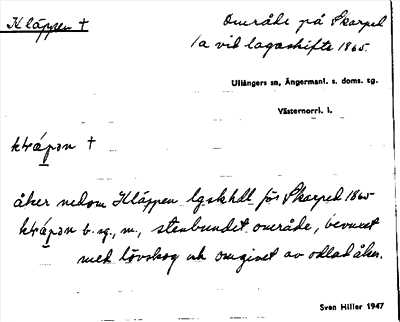 Kläppen †
Område på Skarped
1a vid lagaskifte 1865.
Ullångers sn, Ångermanl. s. doms. tg.
Västernorrl. l.
†
åker nedom Kläppen lgskhdl. för Skarped 1865
b. sg., m., stenbundet område, bevuxet
med lövskog och omgivet av odlad åker.
Sven Hiller 1947